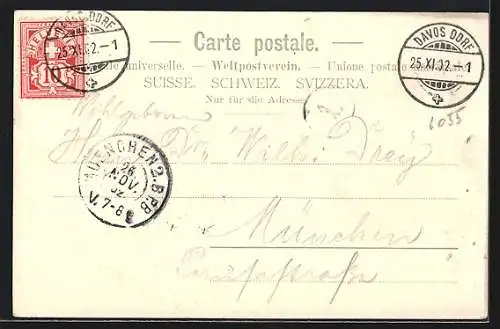 HELVETIA
10
DAVOS DORF
25.XI.02.–1
Carte postale.
DAVOS DORF
25.XI.02.–1
universelle. — Weltpostverein. — Unione postale
SUISSE. SCHWEIZ. SVIZZERA.
Nur für die Adresse
6055
Wohlgeboren
Dr. Wilh.
MUENCHEN 2. B.P.B
26
NOV.
02
V. 7-8
München